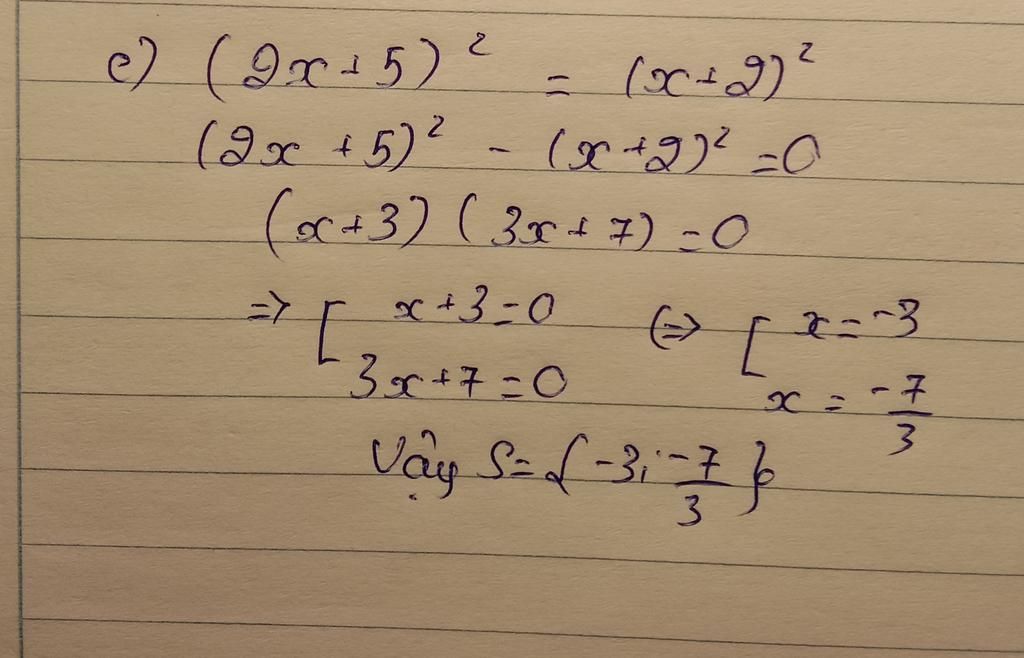 e) (2x+5)² = (x+2)²
(2x+5)² - (x+2)² = 0
(x+3)(3x+7) = 0
=> [ x+3=0 <=> [ x=-3
3x+7=0 x = -7/3
Vậy S={-3; -7/3}